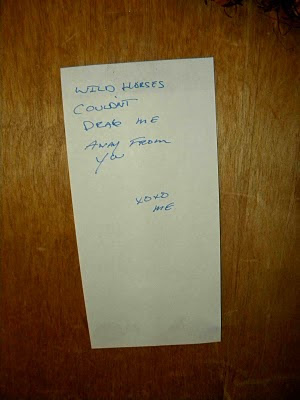 WILD HORSES
COULDN'T
DRAG ME
AWAY FROM
YOU
XOXO
ME